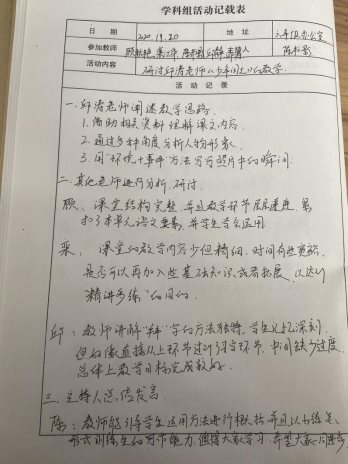 学科组活动记载表
日期 2020.19.20 地址 六年级办公室
参加教师
活动内容 研讨邱涛老师《少年闰土》的教学.
活动记录
一.邱涛老师阐述教学思路.
1.借助相关资料理解课文内容.
2.通过多种角度分析人物形象.
3.用"环境+事件"方法写写照片中的瞬间.
二.其他老师进行分析.研讨
顾:课堂结构完整,并且教学环节层层递进.紧
扣了本单元语文要素,并学生学会运用.
课堂的教学内容少但精细.时间有些宽裕.
是否可以再加入些基础知识或者拓展,以达到
"精讲多练"的目的.
邱:教师讲解"拜"字的方法独特,学生记忆深刻.
但好像直接从上环节过到写字环节,中间缺少过度.
总体上教学目标完成较好.
三.主持人总结发言.
陈:教师能引导学生运用方法进行概括并且以练笔
形式训练生的写作能力,值得大家学习.希望大家